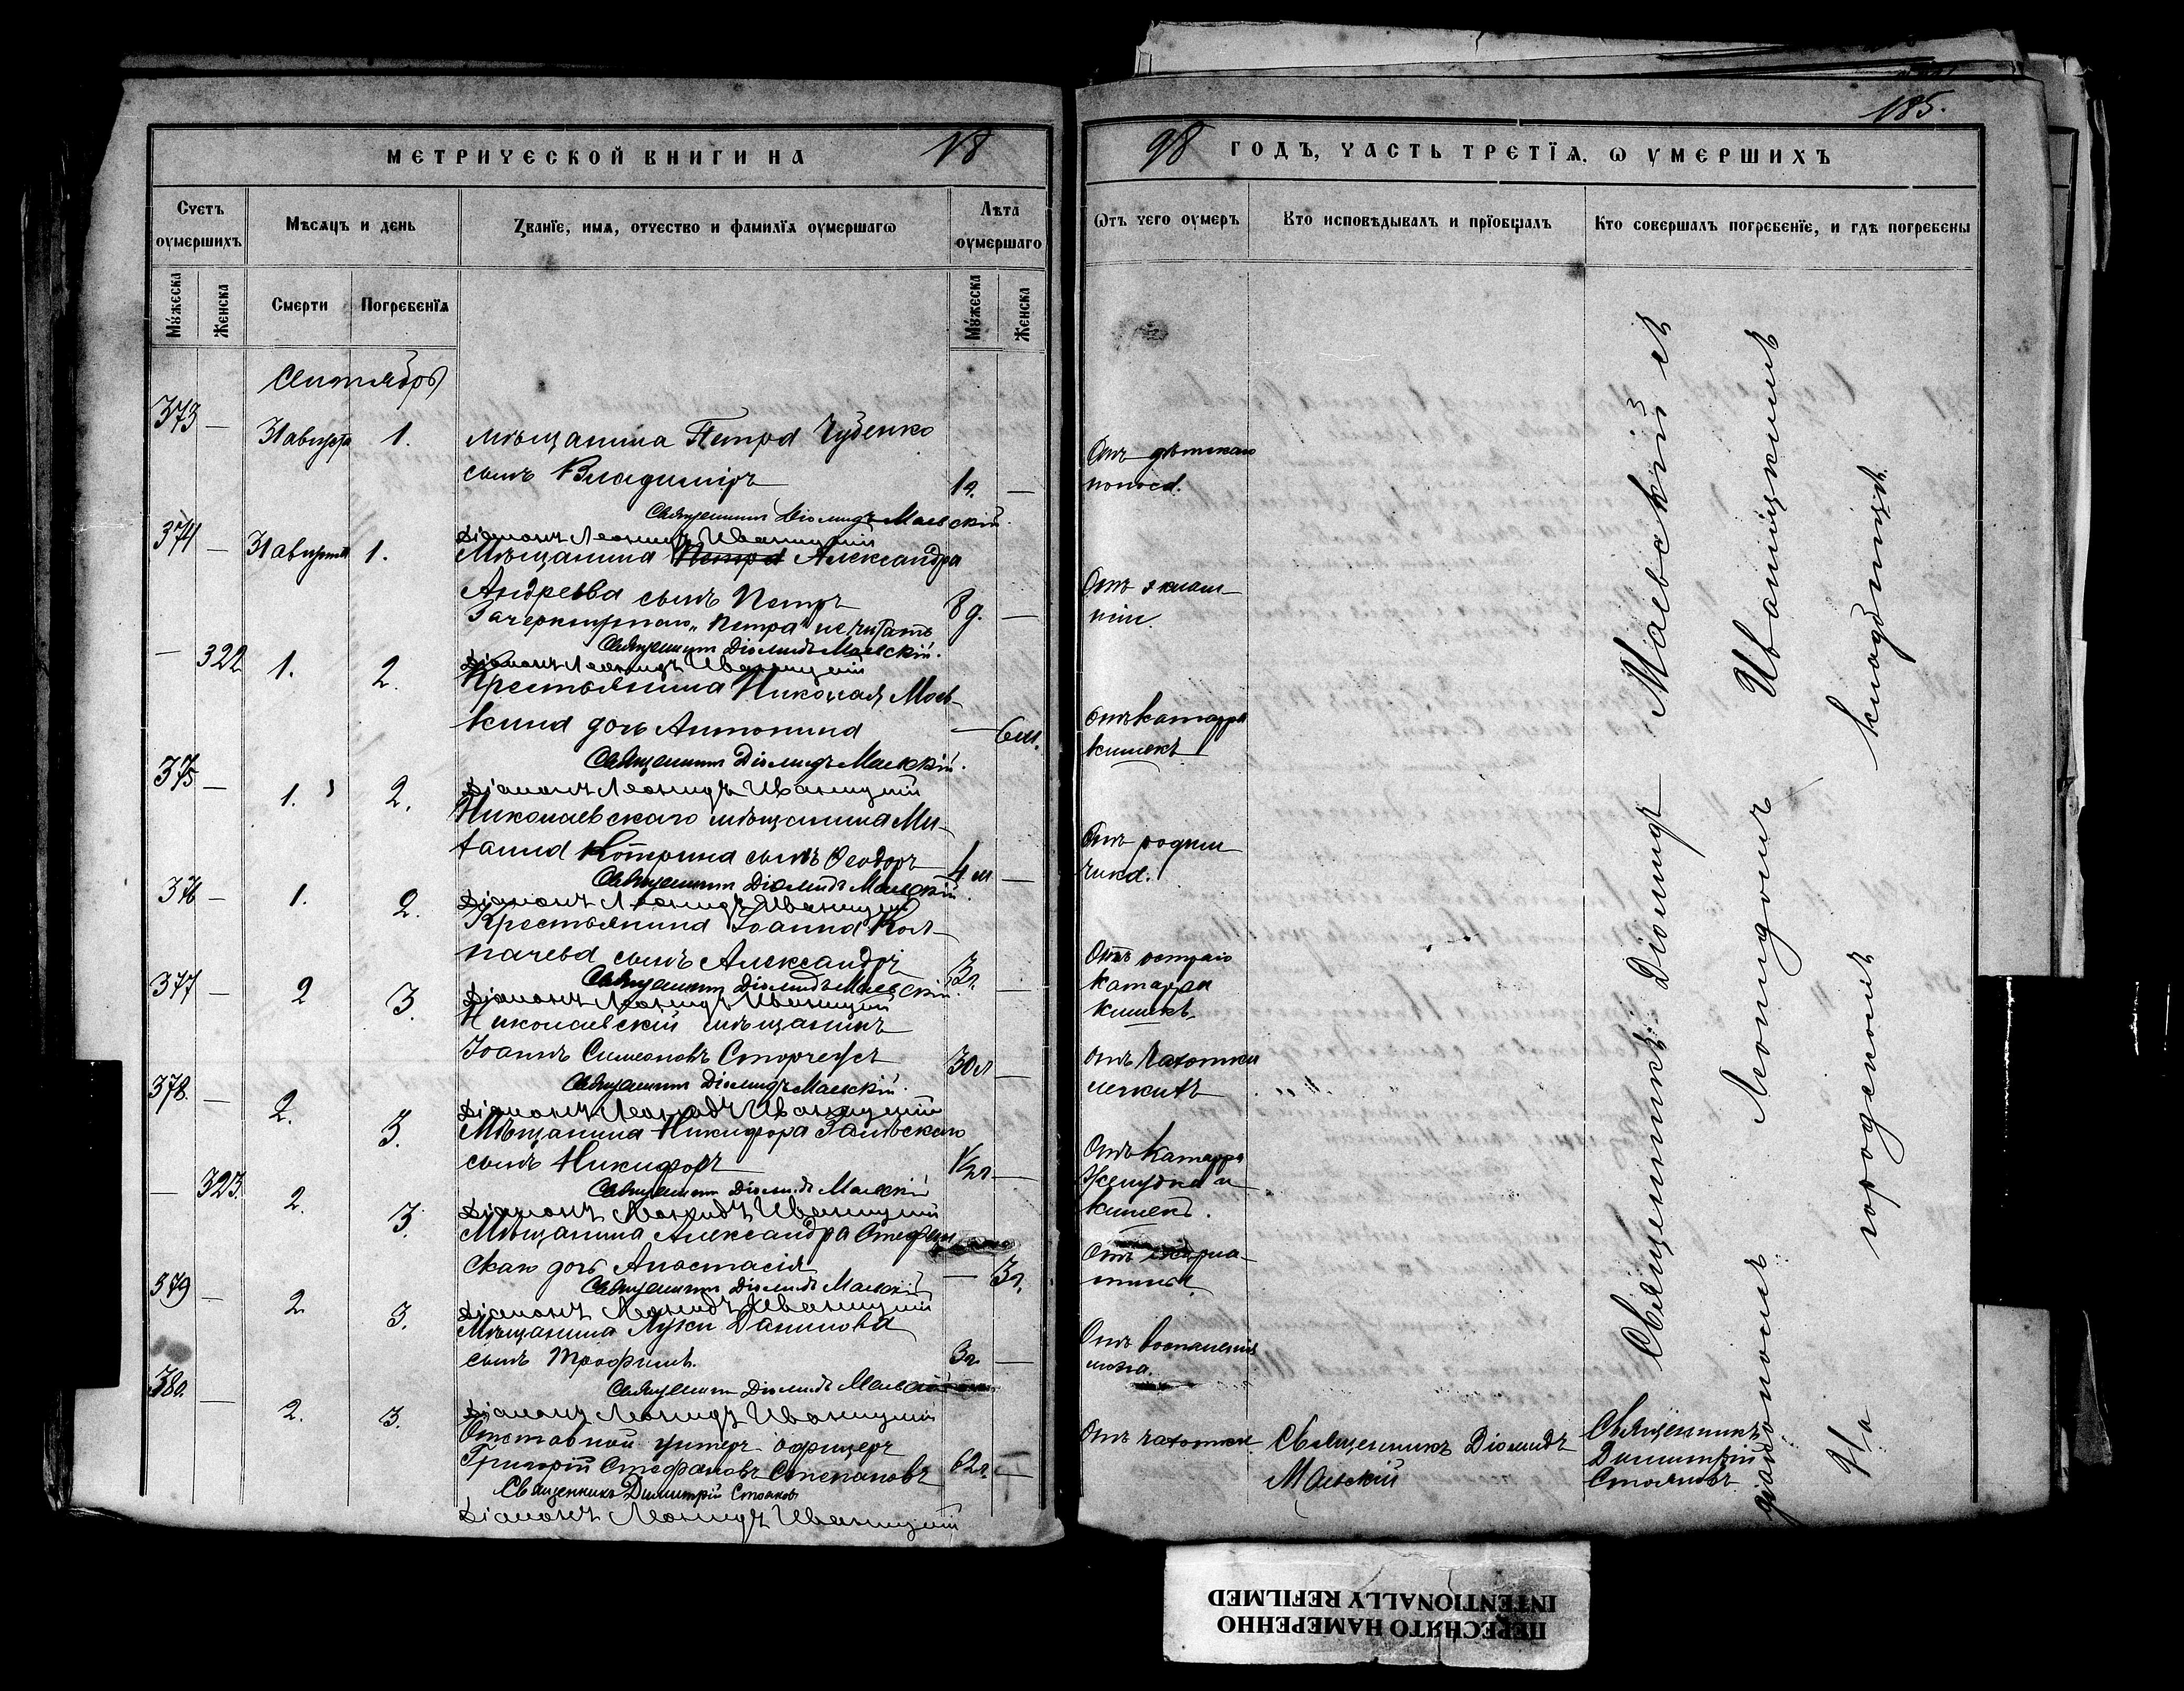 185.
МЕТРИЧЕСКОЙ КНИГИ НА 18
98 ГОДЪ, ЧАСТЬ ТРЕТІѦ, Ѡ УМЕРШИХЪ
Счетъ оумершихъ
Мѣсѧцъ и день
Званїе, имѧ, отчество и фамилїѧ оумершагѡ
Лѣта оумершаго
Ѿтъ чего оумеръ
Кто исповѣдывалъ и прїобщалъ
Кто совершалъ погребенїе, и гдѣ погребены
Мꙋжеска
Женска
Смерти
Погребенїѧ
Мꙋжеска
Женска
Сентябрь
373 — 31 августа 1. мѣщанина Петра Чубенко
сынъ Владиміръ 1 г. —
Отъ дѣтскаго
поноса.
Священникъ Діомидъ Маевскій.
Діаконъ Леонидъ Иваницкій
374 — 31 августа 1. Мѣщанина Петра Александра
Андреева сынъ Петръ 8 д. —
Зачеркнутаго "Петра" не читать
Отъ эклам-
псіи.
Священникъ Діомидъ Маевскій.
Діаконъ Леонидъ Иваницкій
— 322 1. 2. Крестьянина Николая Мось-
кина дочь Антонина — 6 м.
Отъ катарра
кишекъ
Священникъ Діомидъ Маевскій.
Діаконъ Леонидъ Иваницкій
375 — 1. 2. Николаевскаго мѣщанина Ми-
хаила сынъ Ѳеодоръ 4 м —
Отъ родим
чика.
Священникъ Діомидъ Маевскій.
Діаконъ Леонидъ Иваницкій
376 — 1. 2. Крестьянина Іоанна Кол-
пачева сынъ Александръ 3 г. —
Отъ остраго
катарра
кишекъ.
Священникъ Діомидъ Маевскій.
Діаконъ Леонидъ Иваницкій
377 — 2 3. Николаевскій мѣщанинъ
Іоаннъ Симеоновъ Сторчеусъ 30 л —
Отъ чахотки
легкихъ
Священникъ Діомидъ Маевскій.
Діаконъ Леонидъ Иваницкій
378. — 2. 3. Мѣщанина Никифора Залѣскаго
сынъ Никифоръ 1½ г —
Отъ катарра
желудка и
кишекъ.
Священникъ Діомидъ Маевскій
Діаконъ Леонидъ Иваницкій
— 323. 2. 3. Мѣщанина Александра
дочь Анастасія — 3 г.
Отъ скарла-
тины.
Священникъ Діомидъ Маевскій
Діаконъ Леонидъ Иваницкій
379 — 2 3. Мѣщанина Луки Данилова
сынъ Трофимъ. 3 г. —
Отъ воспаленія
мозга.
Священникъ Діомидъ Маевскій
Діаконъ Леонидъ Иваницкій
380. — 2. 3. Отставной унтеръ-офицеръ
Григорій Стефановъ Степановъ 62 г. —
Отъ чахотки
Священникъ Діомидъ
Маевскій
Священникъ
Димитрій
Стояновъ
Священникъ Димитрій Стояновъ
Діаконъ Леонидъ Иваницкій
Священникъ Діомидъ Маевскій съ
діакономъ Леонидомъ Иваницкимъ
На городскомъ кладбищѣ.
ПЕРЕСНЯТО НАМЕРЕННО
INTENTIONALLY REFILMED